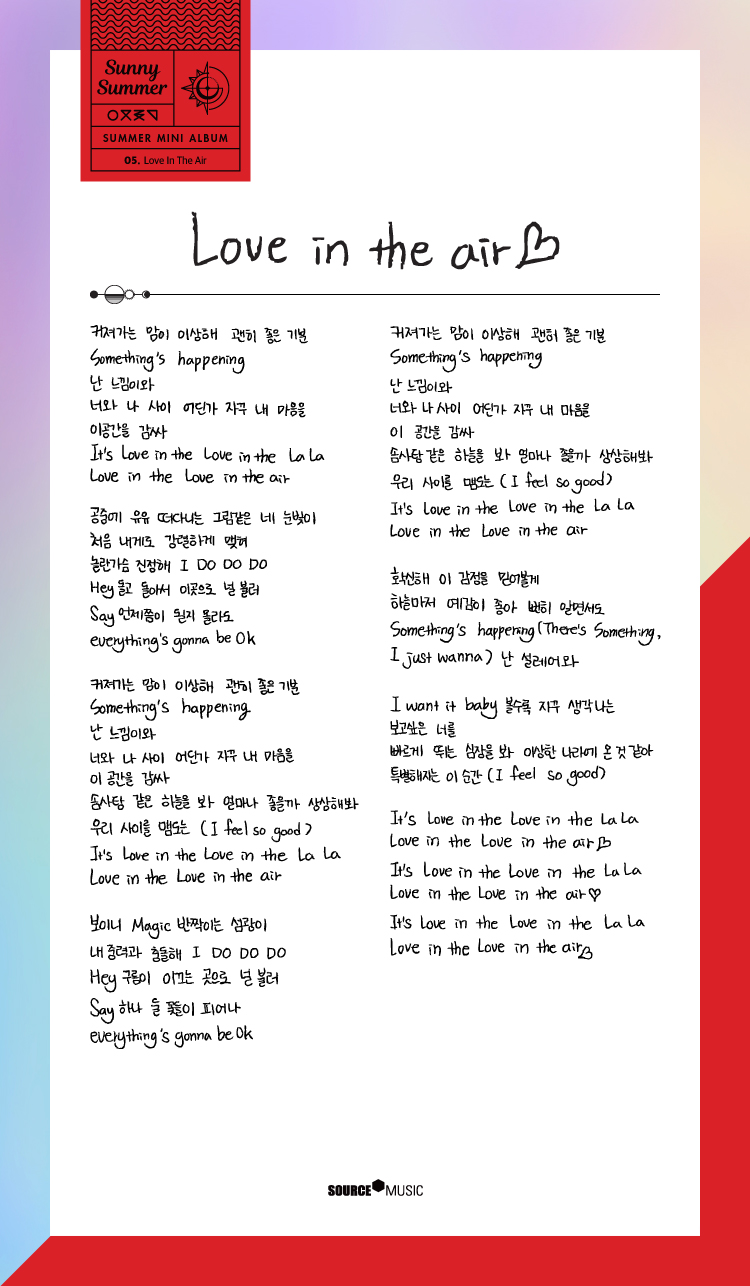 Sunny
Summer
SUMMER MINI ALBUM
05. Love In The Air
Love in the air
커져가는 맘이 이상해 괜히 좋은 기분
Something's happening
난 느낌이와
너와 나 사이 어딘가 자꾸 내 마음을
이공간을 감싸
It's Love in the Love in the La La
Love in the Love in the air
공중에 유유 떠다니는 그림같은 네 눈빛이
처음 내게도 강렬하게 맺혀
놀란가슴 진정해 I DO DO DO
Hey 돌고 돌아서 이곳으로 널 불러
Say 언제쯤이 될지 몰라도
everything's gonna be Ok
커져가는 맘이 이상해 괜히 좋은 기분
Something's happening
난 느낌이와
너와 나 사이 어딘가 자꾸 내 마음을
이 공간을 감싸
솜사탕 같은 하늘을 봐 얼마나 좋을까 상상해봐
우리 사이를 맴도는 (I feel so good)
It's Love in the Love in the La La
Love in the Love in the air
보이니 Magic 반짝이는 섬광이
내 중력과 충돌해 I DO DO DO
Hey 구름이 이끄는 곳으로 널 불러
Say 하나 둘 꽃들이 피어나
everything's gonna be Ok
커져가는 맘이 이상해 괜히 좋은 기분
Something's happening
난 느낌이와
너와 나 사이 어딘가 자꾸 내 마음을
이 공간을 감싸
솜사탕 같은 하늘을 봐 얼마나 좋을까 상상해봐
우리 사이를 맴도는 (I feel so good)
It's Love in the Love in the La La
Love in the Love in the air
확신해 이 감정을 믿어볼게
하늘마저 예감이 좋아 뻔히 알면서도
Something's happening (There's Something,
I just wanna) 난 설레어와
I want it baby 볼수록 자꾸 생각나는
보고싶은 너를
빠르게 뛰는 심장을 봐 이상한 나라에 온 것 같아
특별해지는 이 순간 (I feel so good)
It's Love in the Love in the La La
Love in the Love in the air
It's Love in the Love in the La La
Love in the Love in the air♡
It's Love in the Love in the La La
Love in the Love in the air
SOURCE MUSIC